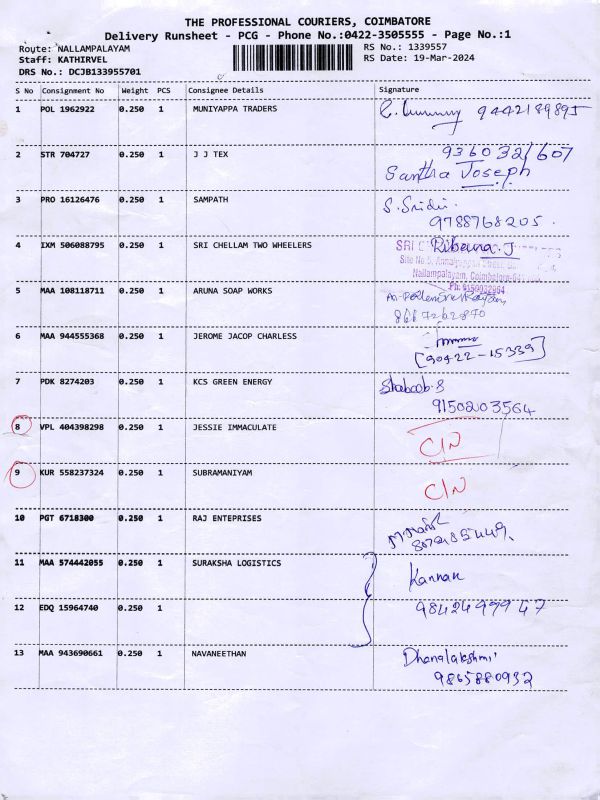 THE PROFESSIONAL COURIERS, COIMBATORE
Delivery Runsheet - PCG - Phone No.:0422-3505555 - Page No.:1
Route: NALLAMPALAYAM RS No.: 1339557
Staff: KATHIRVEL RS Date: 19-Mar-2024
DRS No.: DCJB133955701
S No Consignment No Weight PCS Consignee Details Signature
1 POL 1962922 0.250 1 MUNIYAPPA TRADERS 9442189895
2 STR 704727 0.250 1 J J TEX 9360321607
Santha Joseph
3 PRO 16126476 0.250 1 SAMPATH S. Sridhi.
9788768205.
4 IXM 506088795 0.250 1 SRI CHELLAM TWO WHEELERS SRI C Ribana. J
Site No.5,
Nallampalayam, Coimbatore-641
Ph: 9150032964
5 MAA 108118711 0.250 1 ARUNA SOAP WORKS
8667262870
6 MAA 944555368 0.250 1 JEROME JACOP CHARLESS
[90422-15339]
7 PDK 8274203 0.250 1 KCS GREEN ENERGY Shaboob.S
9150203564
8 VPL 404398298 0.250 1 JESSIE IMMACULATE C/N
9 KUR 558237324 0.250 1 SUBRAMANIYAM C/N
10 PGT 6718300 0.250 1 RAJ ENTEPRISES
11 MAA 574442055 0.250 1 SURAKSHA LOGISTICS Kannan
12 EDQ 15964740 0.250 1 9842499947
13 MAA 943690661 0.250 1 NAVANEETHAN Dhanalakshmi
9865880932